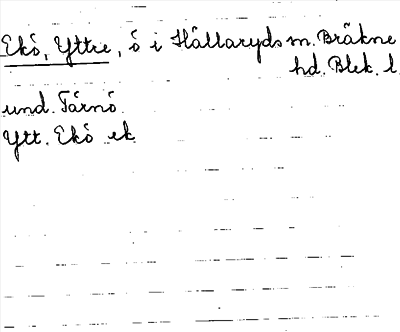 Ekö, Yttre, ö i Hällaryds sn. Bräkne
hd. Blek. l.
und. Tärnö.
Ytt. Ekö ek